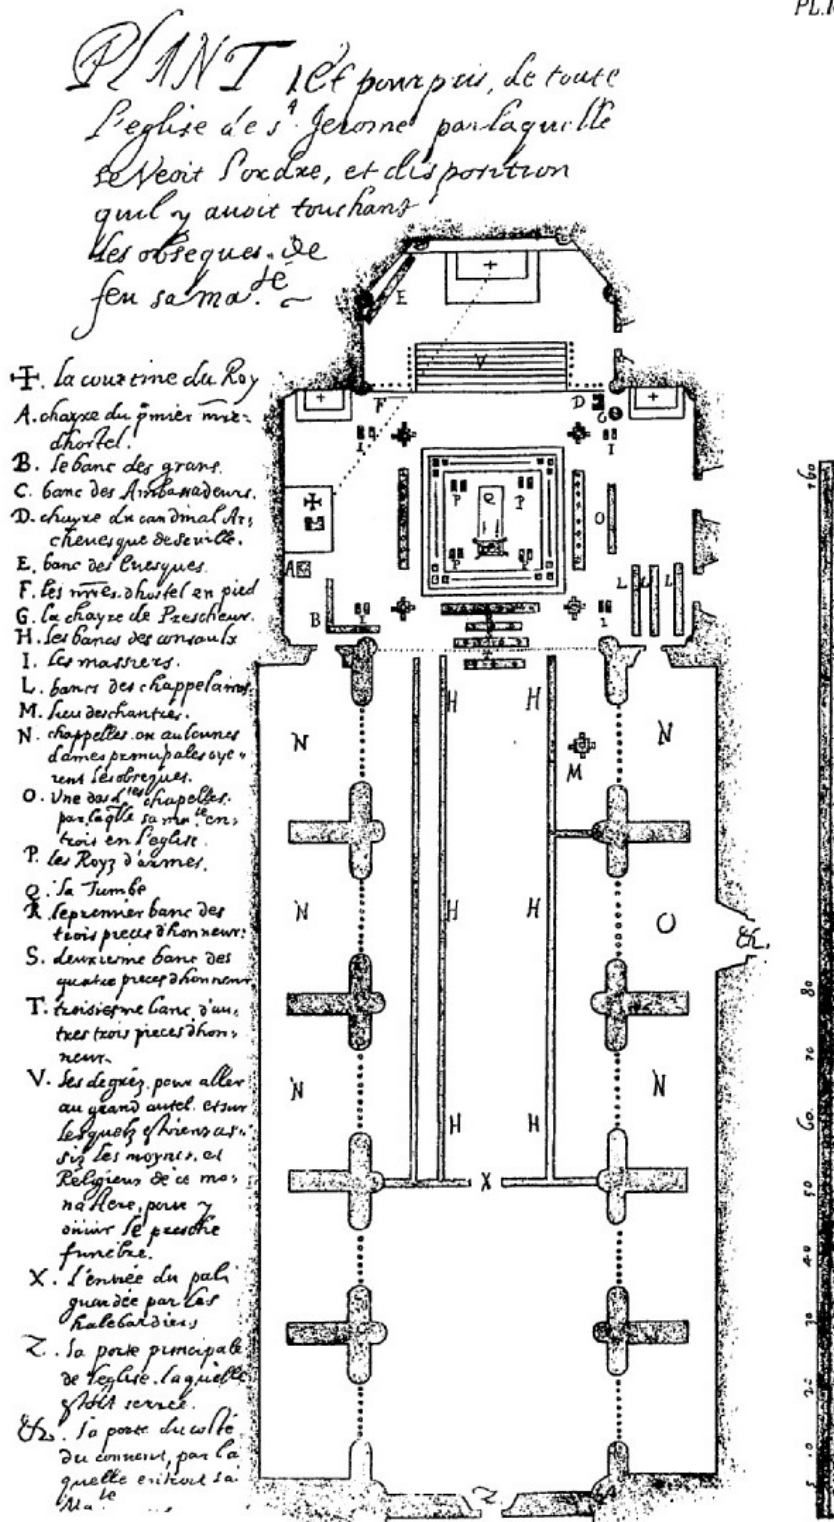 PL.1
PLANT Et pourpris, de toute
l'eglise de st. Jerome par laquelle
se Veoit l'ordre, et disposition
quil y avoit touchant
les obseques. de
feu sa ma.té
✠. la courtine du Roy
A. chayre du pmier mre.
dhostel.
B. le banc des grans.
C. banc des Ambassadeurs.
D. chayre du cardinal Ar:
chevesque de Seville.
E. banc des Evesques.
F. les mres. dhostel en pied
G. la chayre de Prescheur.
H. les bancs des consaulx
I. les massiers.
L. bancs des chappelains.
M. lieu des chantres.
N. chappelles. ou aulcunes
dames principales oye-
rent les obseques.
O. Une des dtes chapelles.
par laqlle sa mate. en-
trois en l'eglise.
P. les Royz d'armes.
Q. la Tumbe
R. le premier banc des
trois pieces d'honneur:
S. deuxiesme banc des
quatre pieces d'honneur
T. troisiesme banc d'au-
tres trois pieces d'hon-
neur.
V. les degrez. pour aller
au grand autel. et sur
lesquelz estoient as-
sis les moynes. et
Religieux de ce mo-
nastere, pour y
ouuir le presche
funebre.
X. l'entrée du pali
guardée par les
halebardiers
Z. la porte principale
de l'eglise. laquelle
estoit serrée.
&. la porte du costé
du convent, par la
quelle entroit sa
Ma.te
E
V
F
D
G
I
I
P
Q
P
O
A
P
P
L
L
L
B
I
I
T
H
H
N
N
M
N
H
H
O
&.
N
N
H
H
X
Z
160
80
70
60
50
40
30
20
10
5